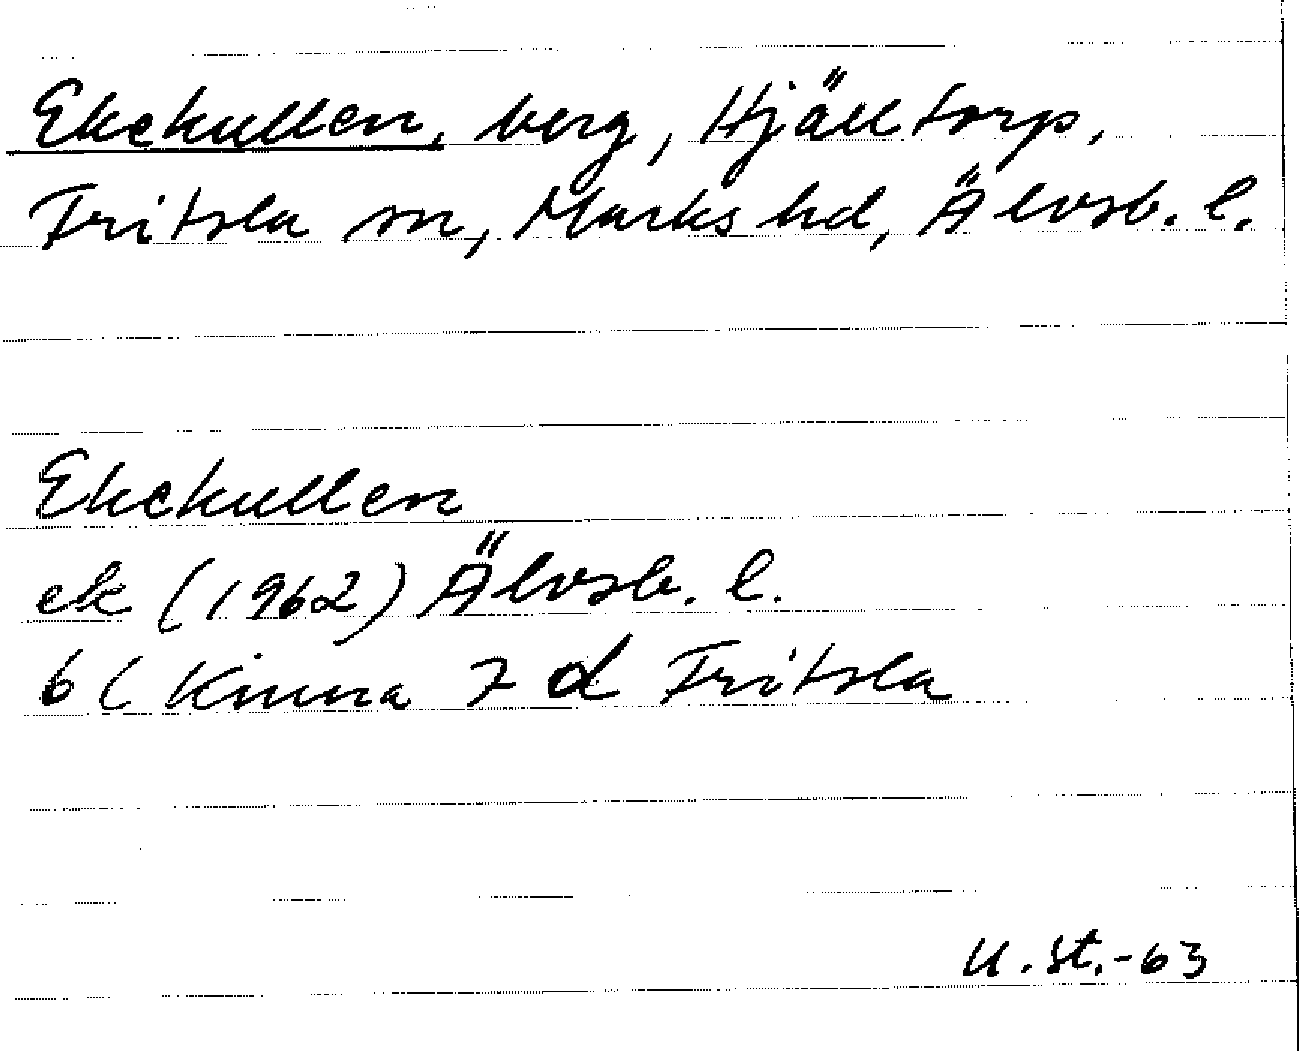 Ekekullen, berg, Hjälltorp,
Fritsla sn, Marks hd, Älvsb. l.
Ekekullen
ek (1962) Älvsb. l.
6 C Kinna 7 d Fritsla
U. St. -63